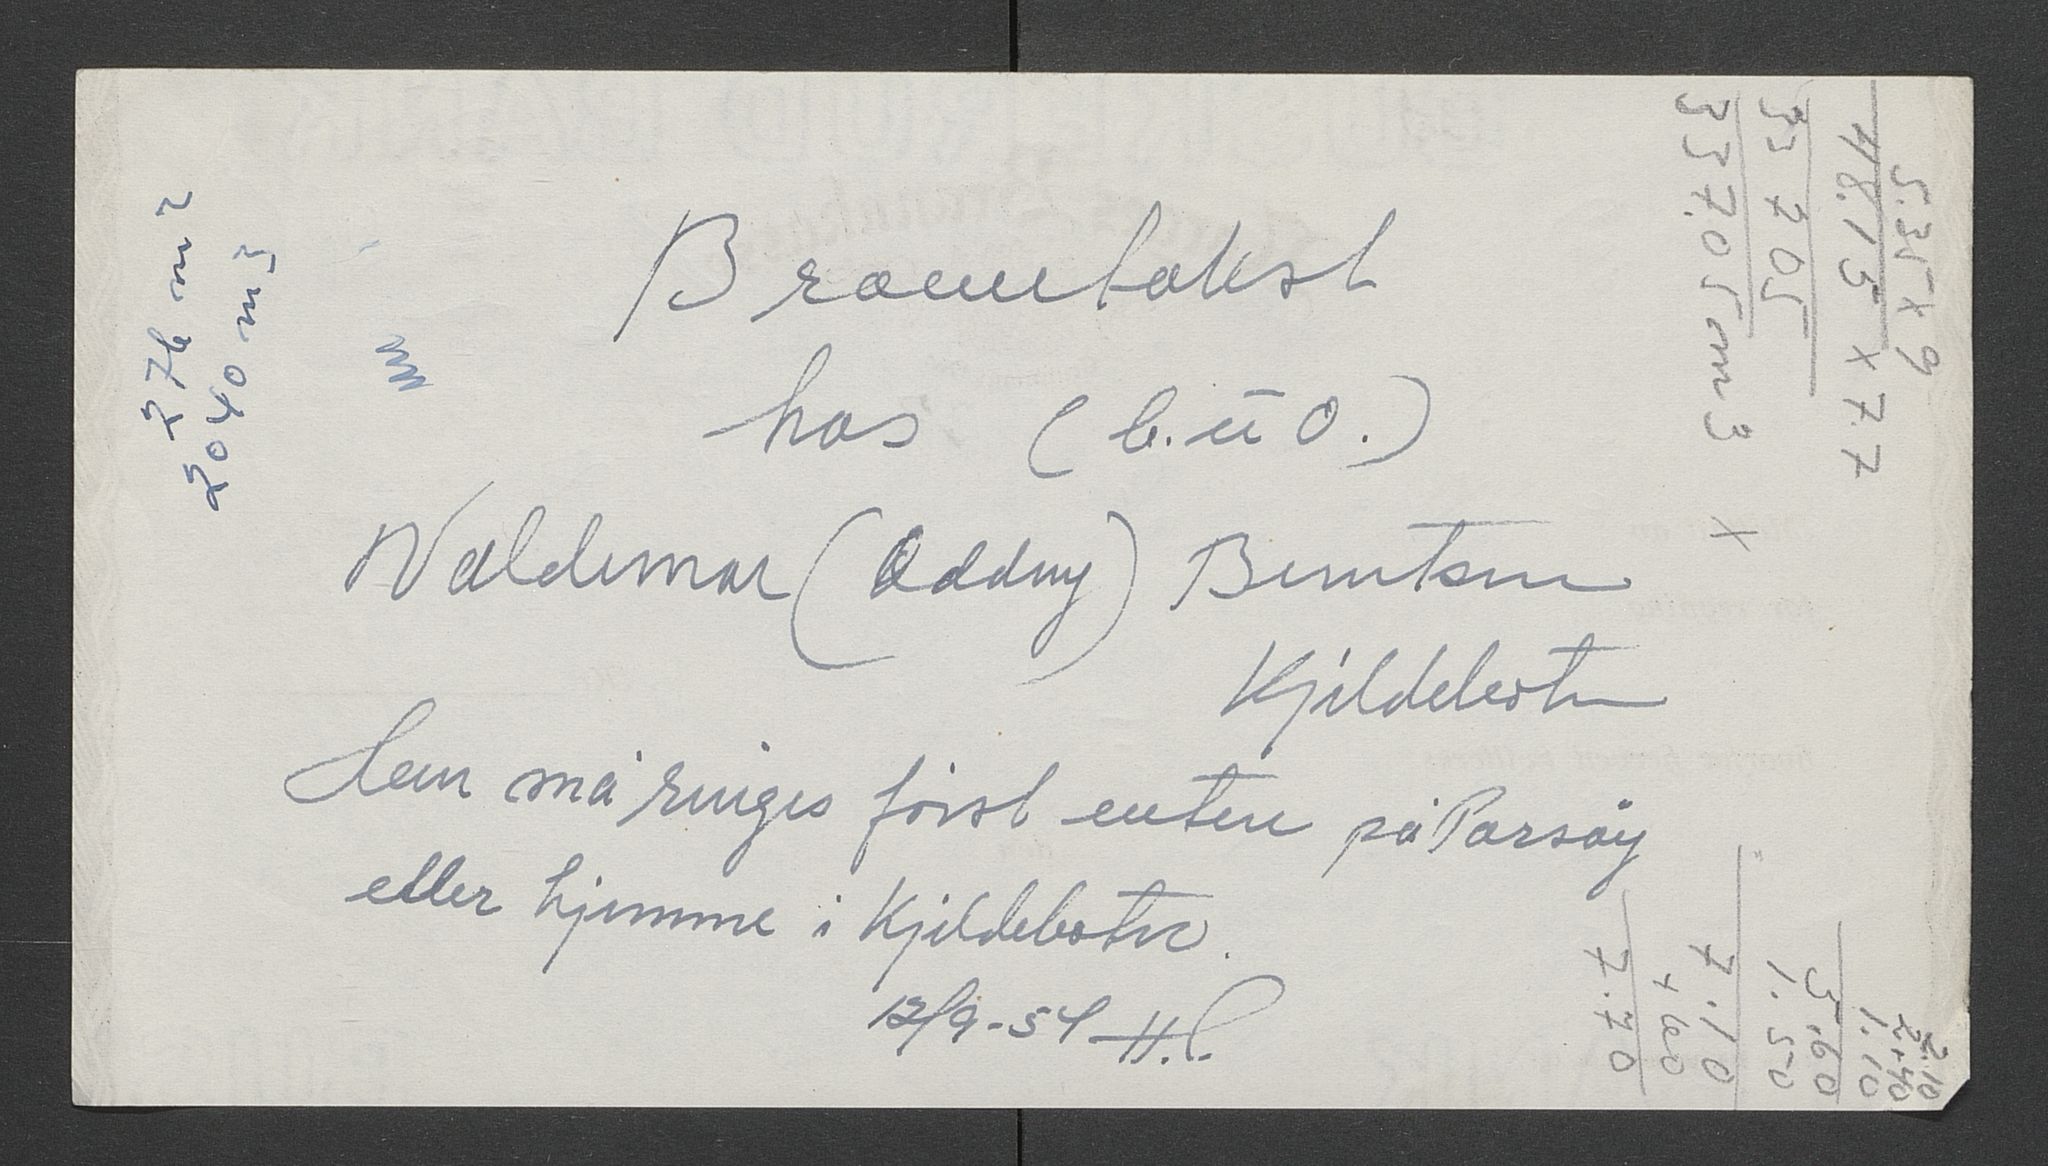 Branntakst
hos (b. u O.)
Valdemar (Oddny) Berntsen
Kjeldebotn
Han må ringes først enten på Parsøy
eller hjemme i Kjeldebotn.
12/9-54 H.
276 m2
2040 m3
5.35 x 9
48.15 x 7.7
33 705
33705
337.05 m3 x
2.10
2.40
1.10
5.60
1.50
7.10
+ 60
7.70